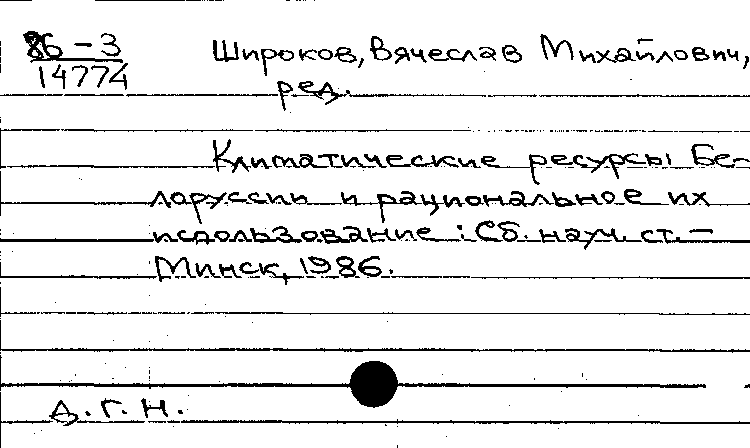 86-3 Широков, Вячеслав Михайлович,
14774 ред.
Климатические ресурсы Бе-
лоруссии и рациональное их
использование : Сб. науч. ст. –
Минск, 1986.
д. г. н.